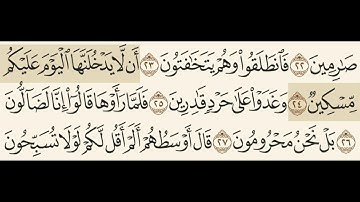 صَٰرِمِينَ ٢٢ فَٱنطَلَقُوا۟ وَهُمْ يَتَخَٰفَتُونَ ٢٣ أَن لَّا يَدْخُلَنَّهَا ٱلْيَوْمَ عَلَيْكُم
مِّسْكِينٌ ٢٤ وَغَدَوْا۟ عَلَىٰ حَرْدٍ قَٰدِرِينَ ٢٥ فَلَمَّا رَأَوْهَا قَالُوٓا۟ إِنَّا لَضَآلُّونَ
٢٦ بَلْ نَحْنُ مَحْرُومُونَ ٢٧ قَالَ أَوْسَطُهُمْ أَلَمْ أَقُل لَّكُمْ لَوْلَا تُسَبِّحُونَ